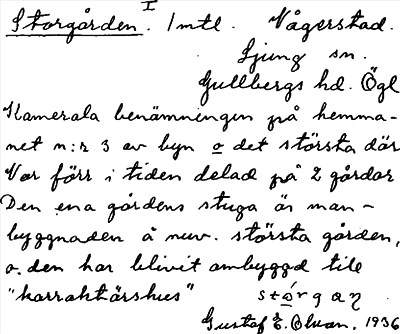 Storgården. I 1 mtl. Vågerstad.
Ljung sn.
Gullbergs hd. Ögl
Kamerala benämningen på hemma-
net n:r 3 av byn o det största där
Var förr i tiden delad på 2 gårdar
Den ena gårdens stuga är man-
byggnaden å nuv. största gården,
o. den har blivit ombyggd till
"karraktärshus" stọ́rgaɳ
Gustaf E. Olwan. 1936